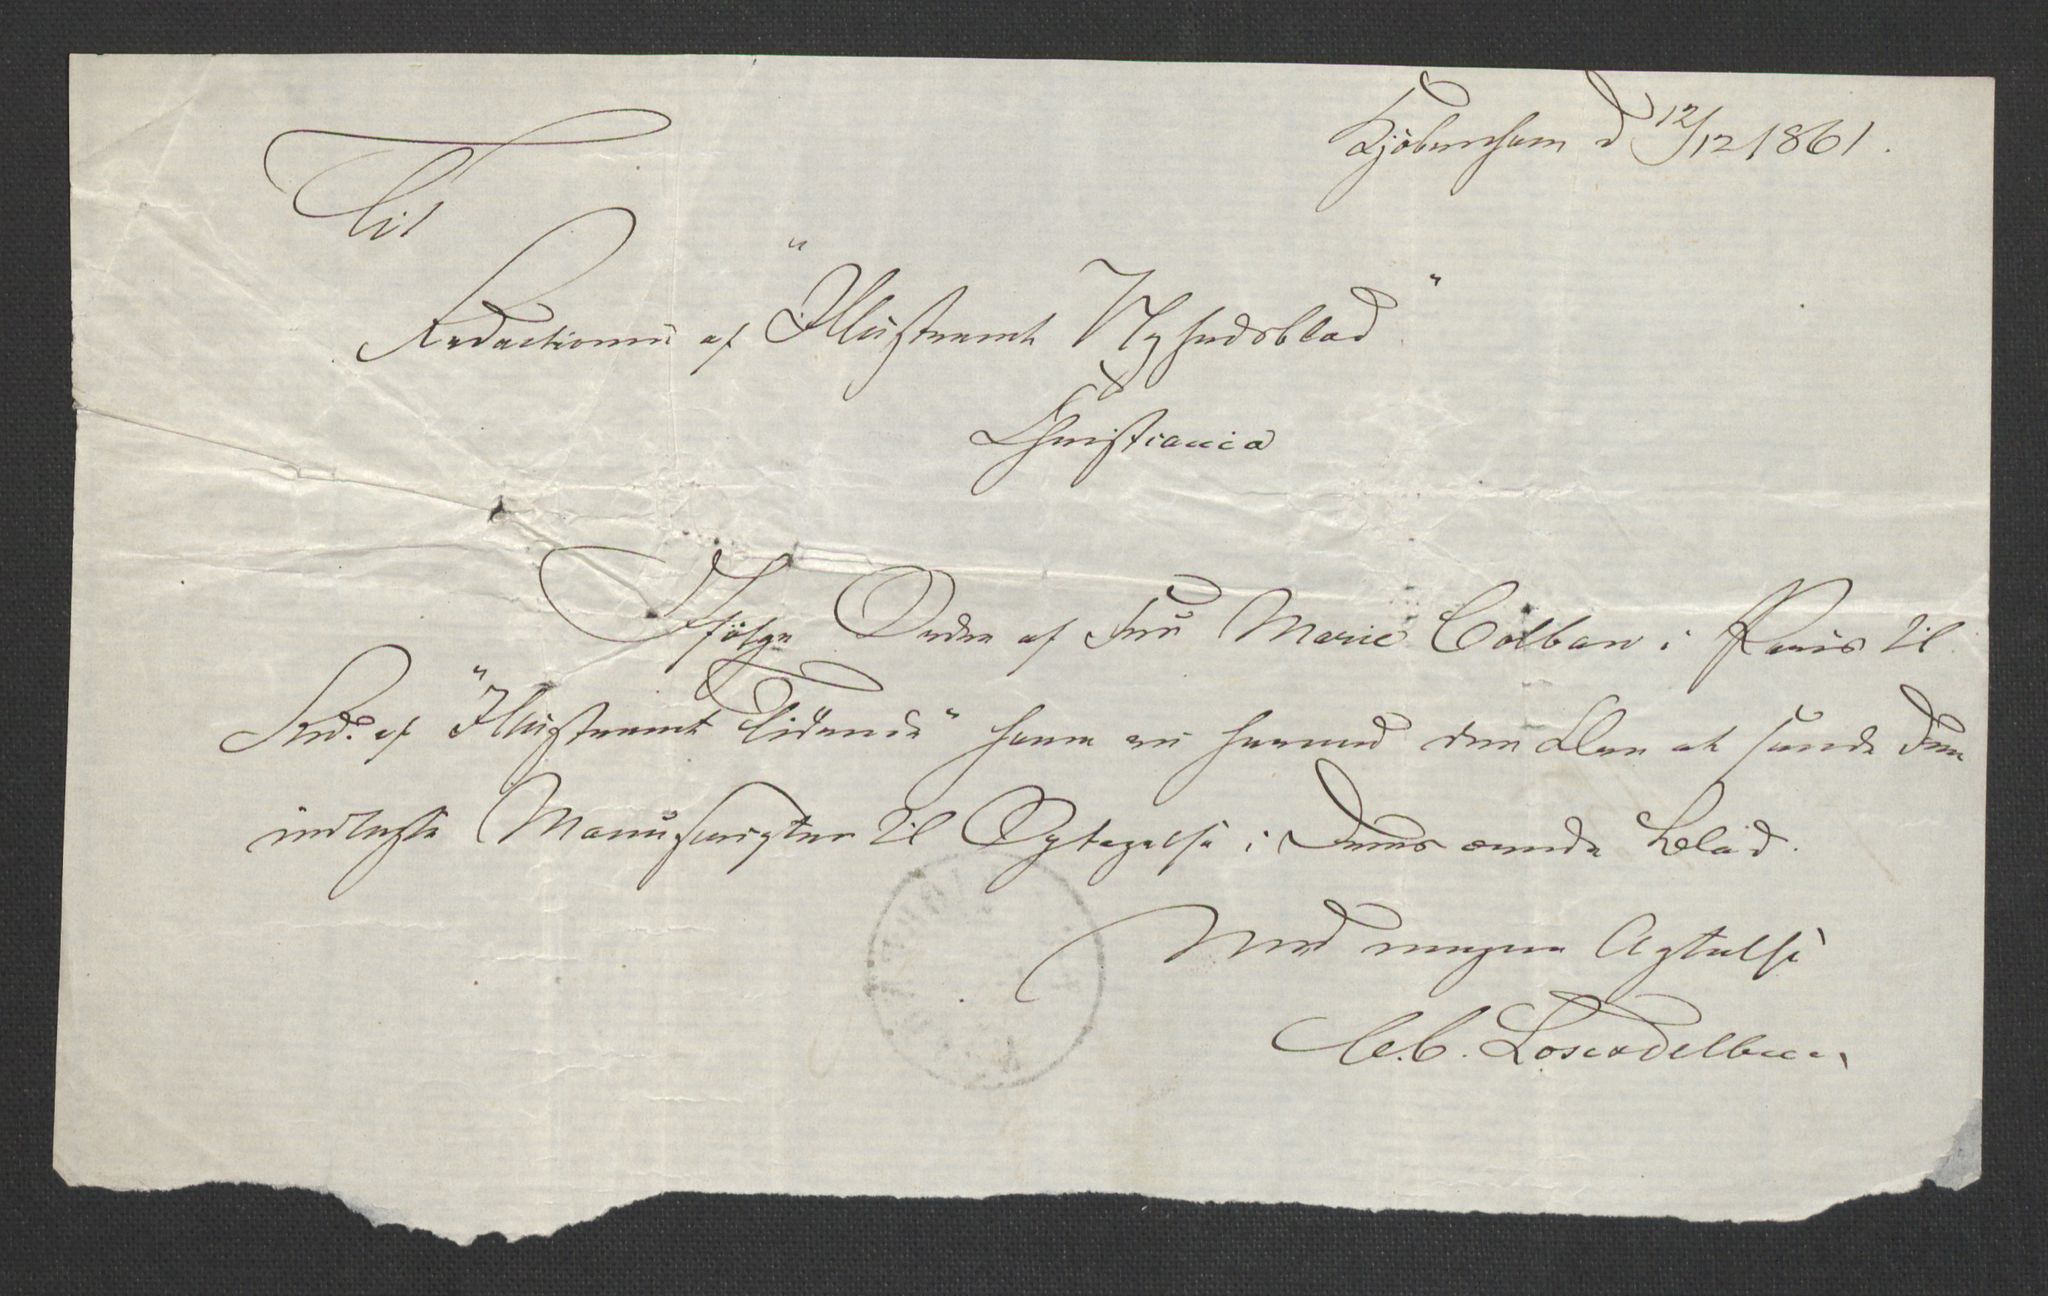 Kjöbenhavn d 12/12 1861.
Til
Redactionen af "Illustreret Nyhedsblad"
Christiania
Ifölge Ordre af Fru Marie Colban i Paris til
Red. af "Illustreret Tidende" have vi herved den Ære at sende Dem
indlagte Manuscripter til Optagelse i Deres ærede Blad.
Med megen Agtelse